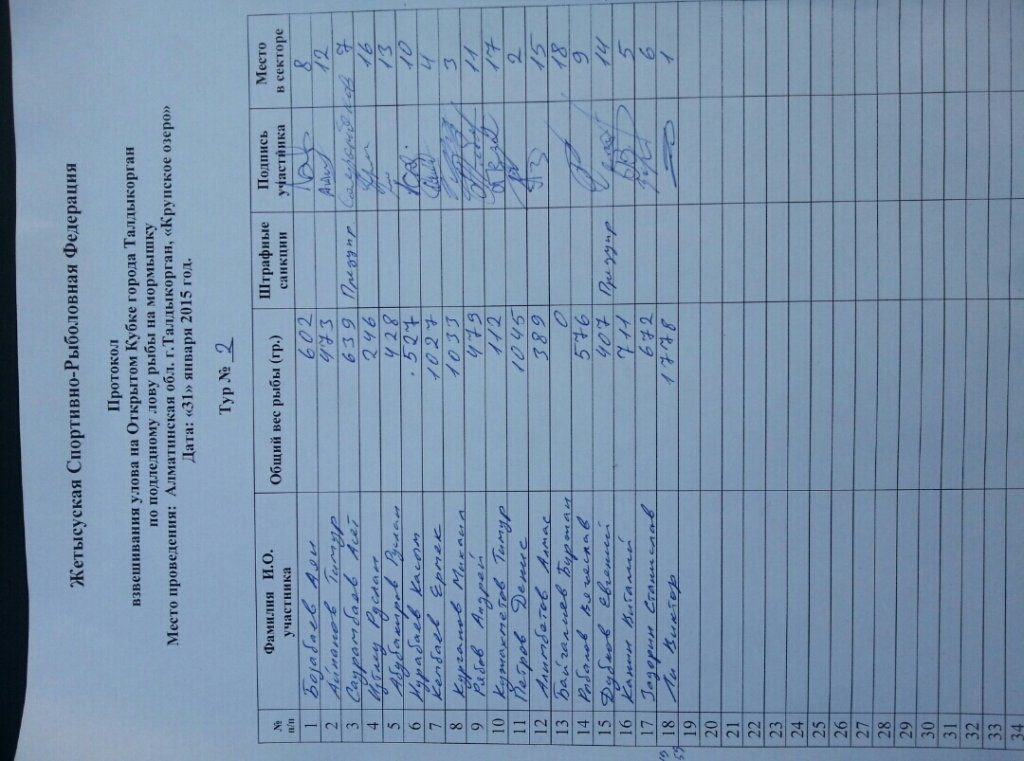 Жетысуская Спортивно-Рыболовная Федерация
Протокол
взвешивания улова на Открытом Кубке города Талдыкорган
по подледному лову рыбы на мормышку
Место проведения: Алматинская обл. г.Талдыкорган, «Крупское озеро»
Дата: «31» января 2015 год.
Тур № 2
№ п/п Фамилия И.О. участника Общий вес рыбы (гр.) Штрафные санкции Подпись участника Место в секторе
1 Бозабаев Аян 602 8
2 Айманов Тимур 473 12
3 Саурамбаев Асет 639 7
4 Руслан 246 16
5 Абубакиров Руслан 428 13
6 Курабаев Касым 527 10
7 Кембаев Ермек 1027 4
8 Курганов Михаил 1033 3
9 Рябов Андрей 479 11
10 Кунахметов Тимур 112 17
11 Петров Денис 1045 2
12 Алимбатов Алмас 389 15
13 Байгалиев Буржан 0 18
14 Рыбалов Вячеслав 576 9
15 Дубков Евгений 407 14
16 Канин Виталий 711 5
17 Задорин Станислав 672 6
18 Ли Виктор 1778 1
19
20
21
22
23
24
25
26
27
28
29
30
31
32
33
34